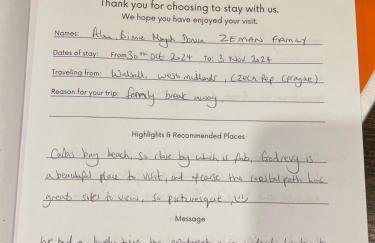 Thank you for choosing to stay with us.
We hope you have enjoyed your visit.
Names: ZEMAN FAMILY
Dates of stay: From 30th Oct 2024 To: 3 Nov 2024
Traveling from: Walsall, west midlands, (Czech Rep (Prague)
Reason for your trip: family break away
Highlights & Recommended Places
bay beach, so close by which is fab, Godrevy is
a beautiful place to visit, and of course the coastal path has
great sites to view, so picturesque,
Message